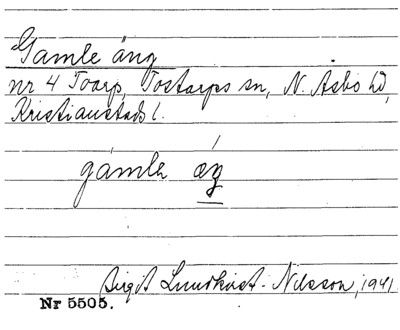 Gamle äng
nr 4 Toarp, Tostarps sn, N. Åsbo hd,
Kristianstads l.
gámlɐ ǽŋ
Birgit Lundkvist-Nilsson, 1941.
Nr 5505.